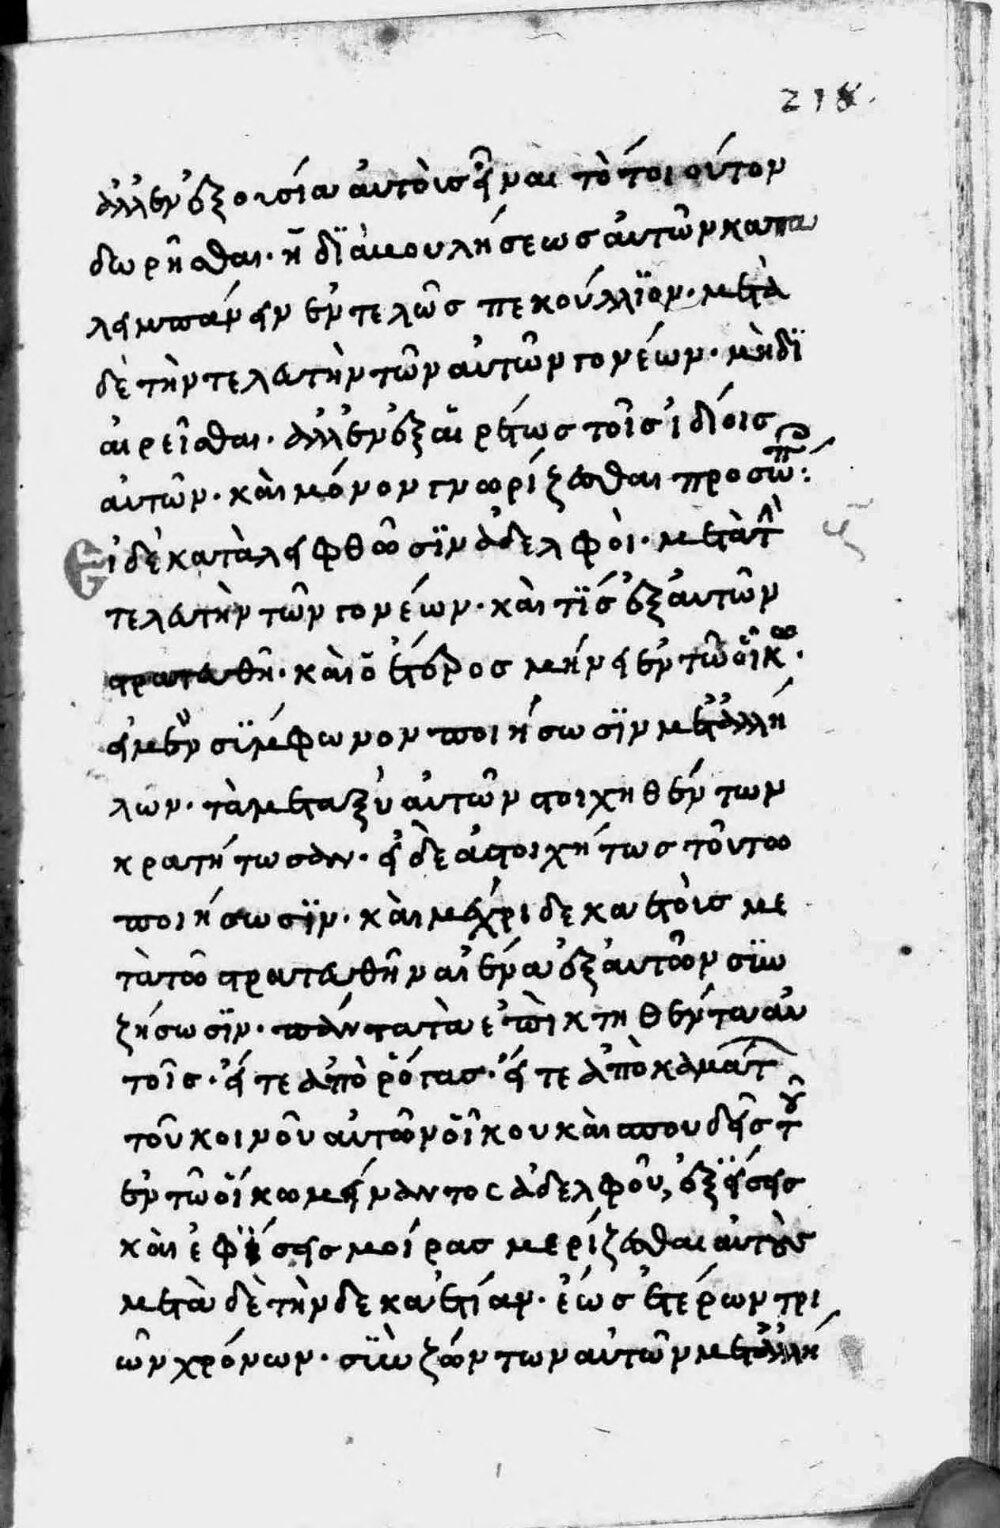 218.
ἀλλ' ἐν ἐξουσία αὐτοῖς εἶναι τὸ τοιοῦτον
δωρῆσθαι. ἢ δϊαμουλήσεως αὐτῶν κατα
λειμπάνειν ἐντελῶς πεκούλλϊον. μετὰ
δὲ τὴν τελευτὴν τῶν αὐτῶν γονέων. μὴ δϊ
αιρεῖσθαι. ἀλλ' ἐν ἐξαιρέτως τοῖς ἰδίοις
αὐτῶν. καὶ μόνον γνωρίζεσθαι προσώπ:
Εἰ δὲ καταλειφθῶσϊν ἀδελφοὶ. μετὰ τὴν
τελευτὴν τῶν γονέων. καὶ τῒς ἐξ αὐτῶν
στρατευθῆ. καὶ ὁ ἕτερος μένει ἐν τῶ οἴκω.
εἰ μὲν σϊμφωνον ποιήσωσϊν μετ' ἀλλή
λων. τὰ μεταξὺ αὐτῶν στοιχηθέντων
κρατήτωσαν. εἰ δὲ ἀστοιχήτως τοῦτο
ποιήσωσϊν. καὶ μέχρι δεκα ἐτοῖς με
τὰ τὸ στρατευθῆναι ἕνα ἐξ αὐτῶν σϊω
ζήσωσϊν. πάντα τὰ ἐπϊκτηθέντα αὐ
τοῖς. εἴτε ἀπὸ ῥόγας. εἴτε ἀπὸ καμάτ
τοῦ κοινοῦ αὐτῶν οἴκου καὶ σπουδῆς τοῦ
ἐν τῶ οἴκω μείναντος ἀδελφοῦ, ἐξϊσης
καὶ ἐφϊσης μοίρας μερίζεσθαι αὐτοὺς
μετὰ δὲ τὴν δεκαετίαν. ἕως ἑτέρων τρι
ῶν χρόνων. σϊωζόντων αὐτῶν μετ' ἀλλή